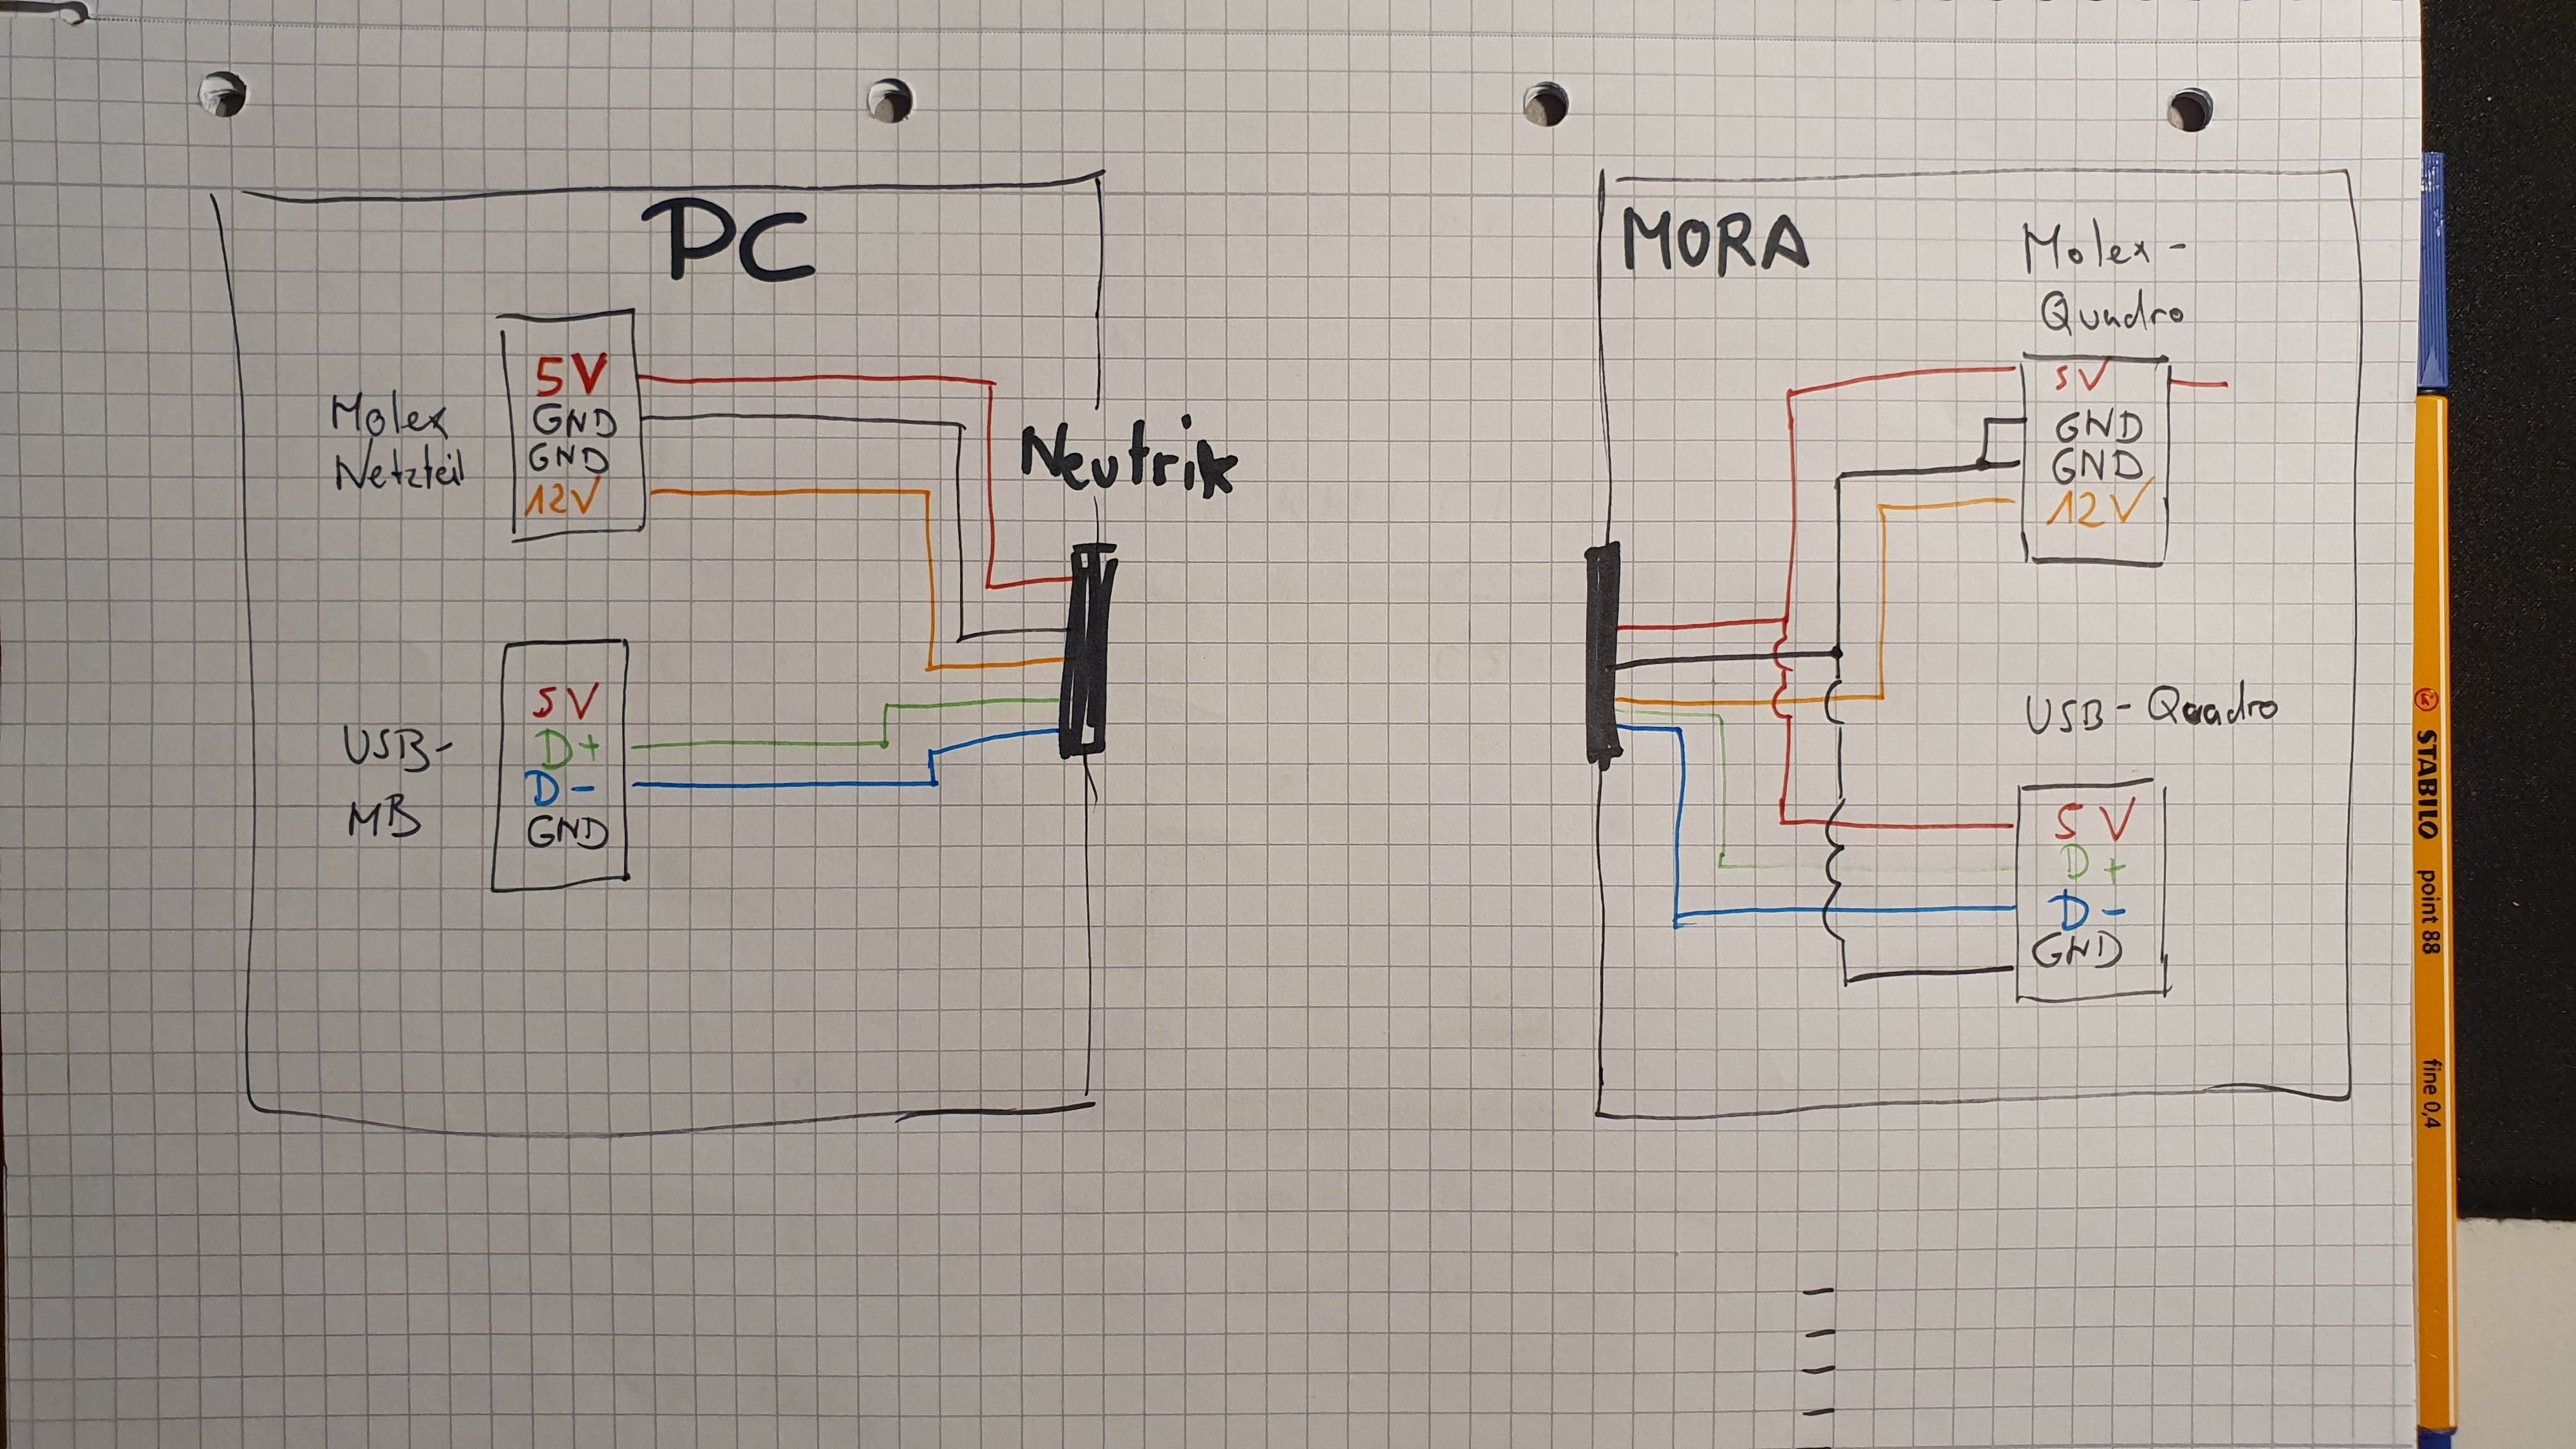 PC
Molex
Netzteil
5V
GND
GND
12V
Neutrik
USB-
MB
5V
D+
D-
GND
MORA
Molex-
Quadro
5V
GND
GND
12V
USB-Quadro
5V
D+
D-
GND
STABILO point 88 fine 0,4